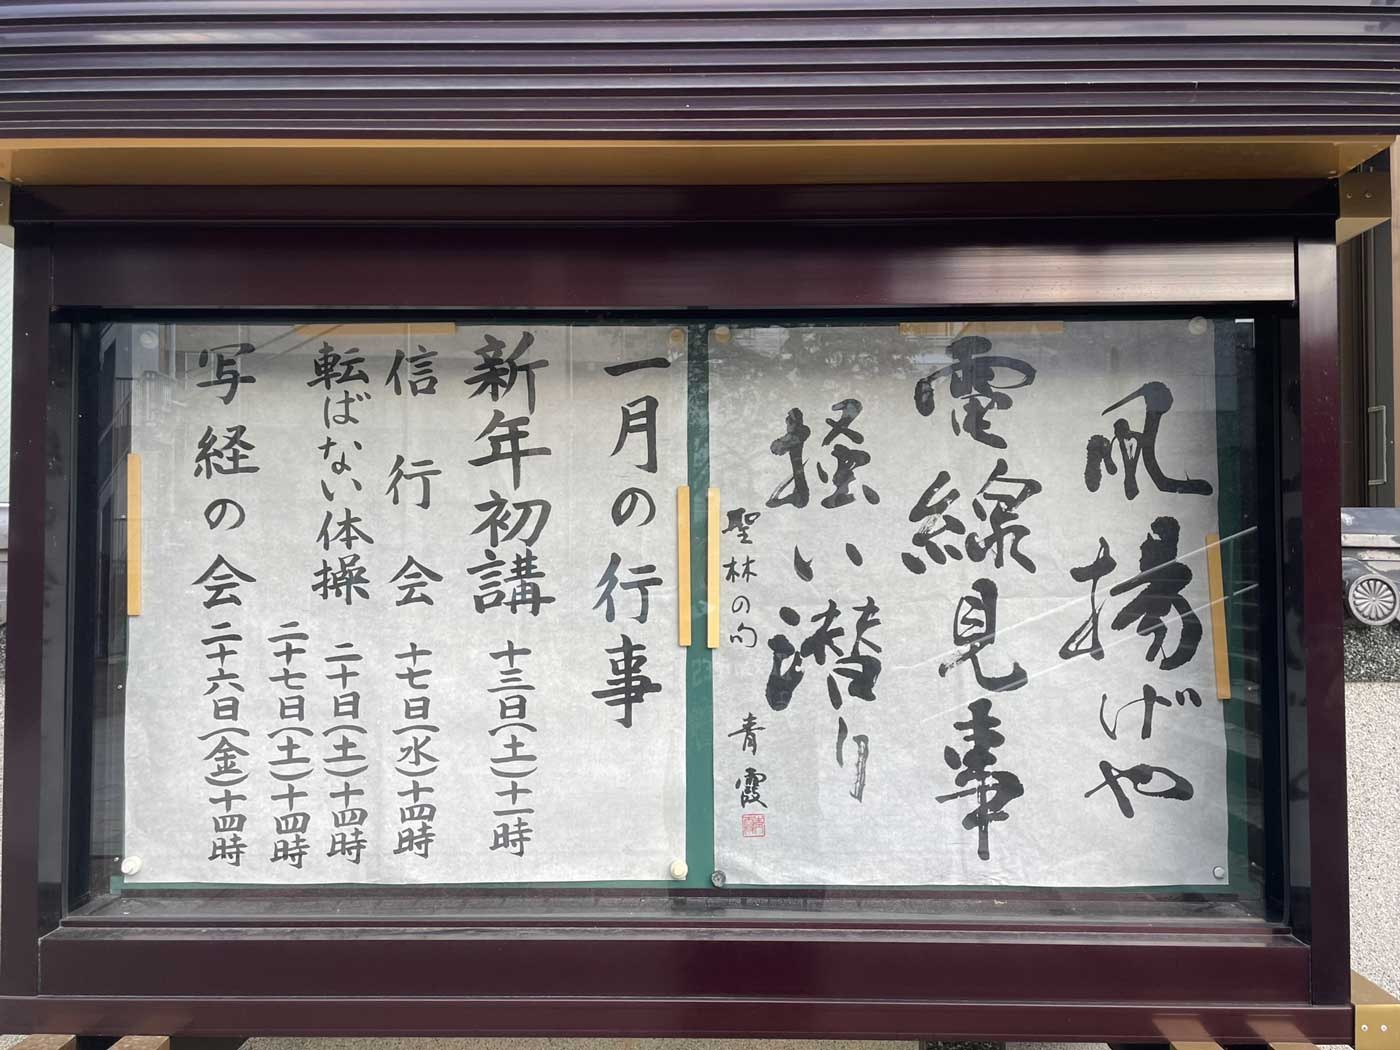 凧揚げや
電線見事
掻い潜り
聖林の句
青霞
一月の行事
新年初講 十三日(土)十一時
信行会 十七日(水)十四時
転ばない体操 二十日(土)十四時
二十七日(土)十四時
写経の会 二十六日(金)十四時